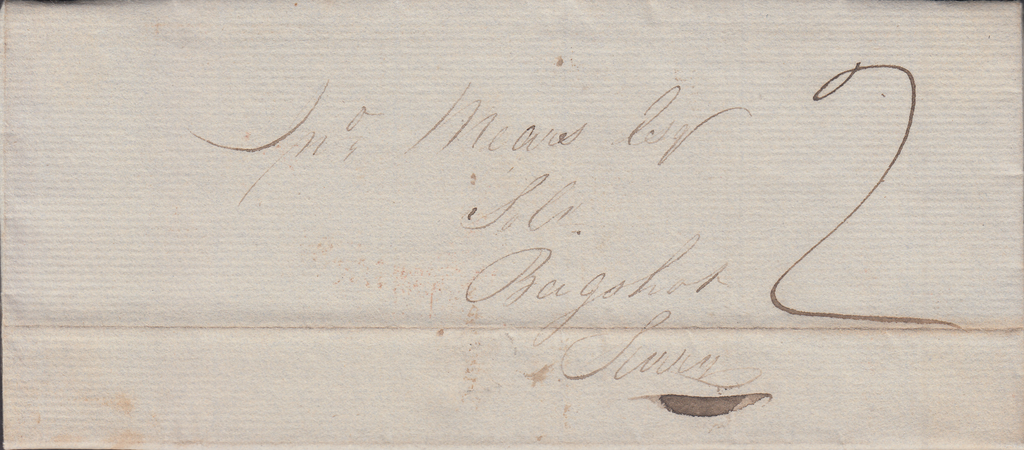 Jno Mears Esqr 2
Solr.
Bagshot
Surry